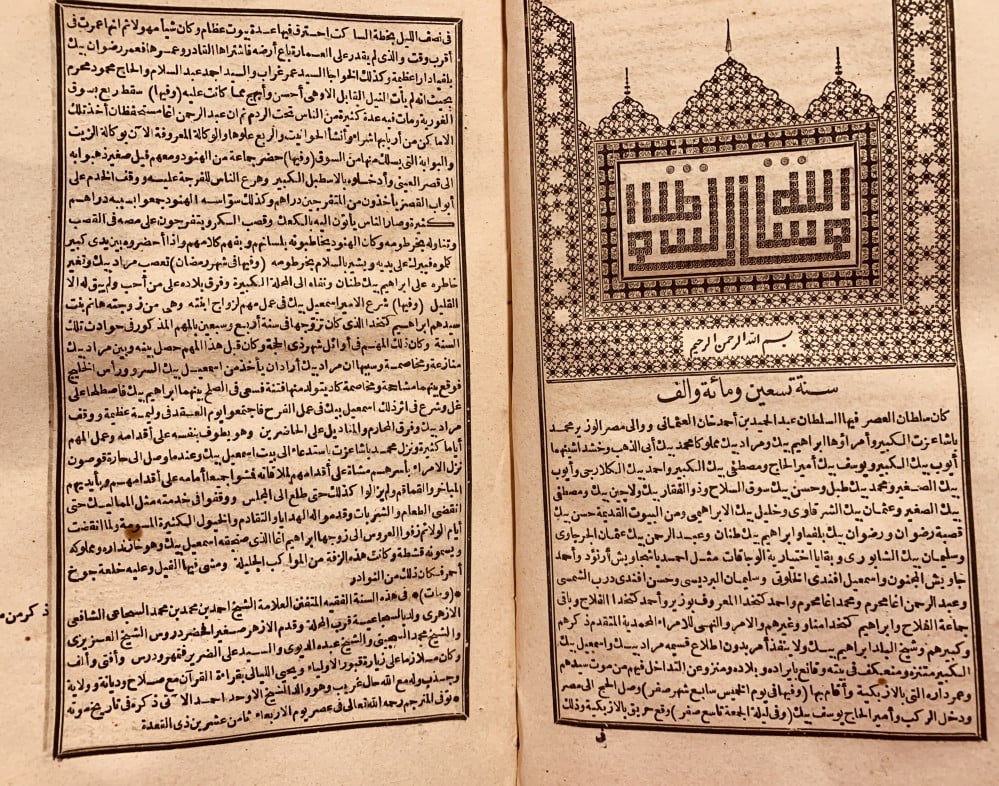 بسم الله الرحمن الرحيم
سنة تسعين ومائة والف
كان سلطان العصر فيها السلطان عبد الحميد بن أحمد خان العثمانى ووالى مصر الوزير محمد
باشا عزت الكبير وأمراؤها ابراهيم بيك ومراد بيك مملوكا محمد بيك أبى الذهب وخشداشينهما
أيوب بيك الكبير ويوسف بيك أمير الحاج ومصطفى بيك الكبير واحمد بيك الكلارجى وأيوب
بيك الصغير ومحمد بيك طبل وحسن بيك سوق السلاح وذو الفقار بيك ولاچين بيك ومصطفى
بيك الصغير وعثمان بيك الشرقاوى وخليل بيك الابراهيمى ومن البيوت القديمة حسن بيك
قصبة رضوان ورضوان بيك بلفيا وابراهيم بيك طنان وعبد الرحمن بيك عثمان الجرجاوى
وسليمان بيك الشابورى وبقايا اختيارية الوجاقات مثل احمد باشجاويش أرنؤد وأحمد
جاويش المجنون واسمعيل افندى الخلوتى وسليمان البرديسى وحسن افندى درب الشمسى
وعبد الرحمن اغا محرم ومحمد اغا محرم واحمد كتخدا المعروف بوزير وأحمد كتخدا الفلاح وباقى
جماعة الفلاح وابراهيم كتخدا مناو وغيرهم والامر والنهى للامراء المحمدية المتقدم ذكرهم
وكبيرهم وشيخ البلد ابراهيم بيك ولا ينفذ أمر بدون اطلاع قسيمه مراد بيك واسمعيل بيك
الكبير متنزه ومنعكف فى بيته وقانع بايراده وبلاده ومنزو عن التداخل فيهم من موت سيدهم
وعمر داره التى بالازبكية وأقام بها (وفيها فى يوم الخميس سابع شهر صفر) وصل الحج الى مصر
ودخل الركب وأمير الحاج يوسف بيك (وفى ليلة الجمعة تاسع صفر) وقع حريق بالازبكية وذلك
فى
فى نصف الليل بخطة الساكت احترق فيها عدة بيوت عظام وكان شيأ مهولا ثم انها عمرت فى
أقرب وقت والذى لم يقدر على العمارة باع أرضه فاشتراها القادر وعمرها فعمر رضوان بيك
بلفيا دارا عظيمة وكذلك الخواجا السيد عمر غراب والسيد احمد عبد السلام والحاج محمود محرم
بحيث انه لم يأت النيل القابل الا وهى أحسن وأبهج مما كانت عليه (وفيها) سقط ربع بسوق
الغورية ومات فيه عدة كثيرة من الناس تحت الردم ثم ان عبد الرحمن اغا مستحفظان أخذ تلك
الاماكن من أربابها شراء وأنشأ الحوانيت والربع علوها والوكالة المعروفة الآن بوكالة الزيت
والبوابة التى يسلك منها من السوق (وفيها) حضر جماعة من الهنود ومعهم فيل صغير ذهبوا به
الى قصر العينى وأدخلوه بالاسطبل الكبير وهرع الناس للفرجة عليه ووقف الخدم على
أبواب القصر يأخذون من المتفرجين دراهم وكذلك سواسه الهنود جمعوا بسببه دراهم
كثيرة وصار الناس يأتون اليه بالكعك وقصب السكر ويتفرجون على مصه فى القصب
وتناوله بخرطومه وكان الهنود يخاطبونه بلسانهم ويفهم كلامهم واذا أحضروه بين يدى كبير
كلموه فيبرك على يديه ويشير بالسلام بخرطومه (وفيها فى شهر رمضان) تعصب مراد بيك وتغير
خاطره على ابراهيم بيك طنان ونفاه الى المحلة الكبيرة وفرق بلاده على من أحب ولم يبق له الا
القليل (وفيها) شرع الامير اسمعيل بيك فى عمل مهم لزواج ابنته وهى من زوجته هانم بنت
سيدهم ابراهيم كتخدا الذى كان تزوجها فى سنة أربع وسبعين بالمهم المذكور فى حوادث تلك
السنة وكان ذلك المهم فى أوائل شهر ذى الحجة وكان قبل هذا المهم حصل بينه وبين مراد بيك
منازعة ومخاصمة وسببها ان مراد بيك أراد ان يأخذ من اسمعيل بيك السرو ورأس الخليج
فوقع بينهما مشاححة ومخاصمة كاد يتولد منها فتنة فسعى فى الصلح بينهما ابراهيم بيك فاصطلحا على
غل وشرع فى اثر ذلك اسمعيل بيك فى عمل الفرح فاجتمعوا يوم العقد فى وليمة عظيمة ووقف
مراد بيك وفرق المحارم والمناديل على الحاضرين وهو يطوف بنفسه على أقدامه وعمل المهم
أياما كثيرة ونزل محمد باشا عزت باستدعاء الى بيت اسمعيل بيك وعندما وصل الى حارة قوصون
نزل الامراء بأسرهم مشاة على أقدامهم لملاقاته فمشوا جميعا أمامه على أقدامهم وبأيديهم
المباخر والقماقم ولم يزالوا كذلك حتى طلع الى المجلس ووقفوا فى خدمته مثل المماليك حتى
انقضى الطعام والشربات وقدموا له الهدايا والتقادم والخيول الكثيرة المسومة ولما انقضت
أيام الولائم زفوا العروس الى زوجها ابراهيم اغا الذى صنجقه اسمعيل بيك وهو خازنداره ومملوكه
ويسمونه قشطة وكانت هذه الزفة من المواكب الجليلة ومشى فيها الفيل وعليه خلعة جوخ
أحمر فكان ذلك من النوادر
*(ومات)* فى هذه السنة الفقيه المتفنن العلامة الشيخ احمد بن محمد بن محمد السجاعى الشافعى
الازهرى ولد بالسجاعية قرب المحلة وقدم الازهر صغيرا فحضر دروس الشيخ العزيزى
والشيخ محمد السجينى والشيخ عبده الديوى والسيد على الضرير فتمهر ودرس وأفتى وألف
وكان ملازما على زيارة قبور الاولياء ويحيى الليالى بقراءة القرآن مع صلاح وديانة وولاية
وجذب وله مع الله حال غريب وهو والد الشيخ الاوحد احمد الآتى ذكره فى تاريخ موته
*توفى المترجم رحمه الله تعالى فى عصر يوم الاربعاء ثامن عشرين ذى القعدة
ذكر من